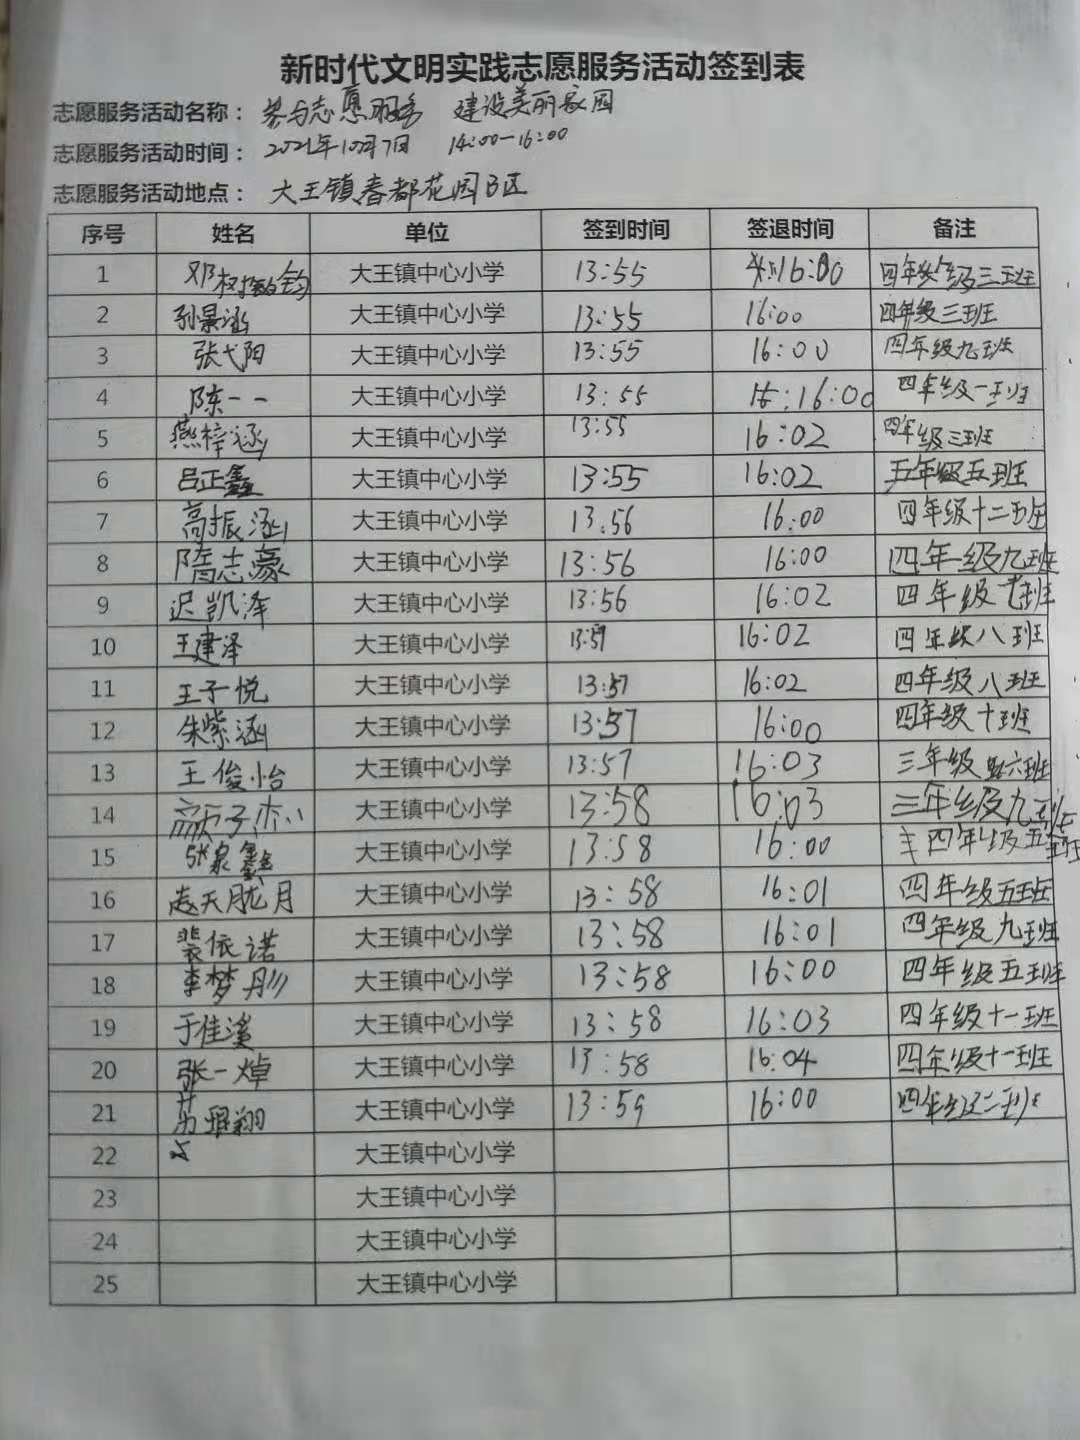 新时代文明实践志愿服务活动签到表
志愿服务活动名称：参与志愿服务 建设美丽家园
志愿服务活动时间：2021年10月7日 14:00—16:00
志愿服务活动地点：大王镇春都花园B区
序号 姓名 单位 签到时间 签退时间 备注
1 邓 大王镇中心小学 13:55 16:00 四年级三班
2 孙景涵 大王镇中心小学 13:55 16:00 四年级三班
3 张弋阳 大王镇中心小学 13:55 16:00 四年级九班
4 陈一一 大王镇中心小学 13:55 16:00 四年级一班
5 燕梓涵 大王镇中心小学 13:55 16:02 四年级三班
6 吕正鑫 大王镇中心小学 13:55 16:02 五年级五班
7 高振涵 大王镇中心小学 13:56 16:00 四年级十二班
8 隋志豪 大王镇中心小学 13:56 16:00 四年级九班
9 迟凯泽 大王镇中心小学 13:56 16:02 四年级 班
10 王建泽 大王镇中心小学 13:57 16:02 四年级八班
11 王子悦 大王镇中心小学 13:57 16:02 四年级八班
12 朱紫涵 大王镇中心小学 13:57 16:00 四年级十班
13 王俊怡 大王镇中心小学 13:57 16:03 三年级六班
14 颜子 大王镇中心小学 13:58 16:03 三年级九班
15 张泉鑫 大王镇中心小学 13:58 16:00 四年级五班
16 天胧月 大王镇中心小学 13:58 16:01 四年级五班
17 裴依诺 大王镇中心小学 13:58 16:01 四年级九班
18 李梦彤 大王镇中心小学 13:58 16:00 四年级五班
19 于佳溪 大王镇中心小学 13:58 16:03 四年级十一班
20 张一焯 大王镇中心小学 13:58 16:04 四年级十一班
21 翔 大王镇中心小学 13:59 16:00 四年级二班
22 大王镇中心小学
23 大王镇中心小学
24 大王镇中心小学
25 大王镇中心小学